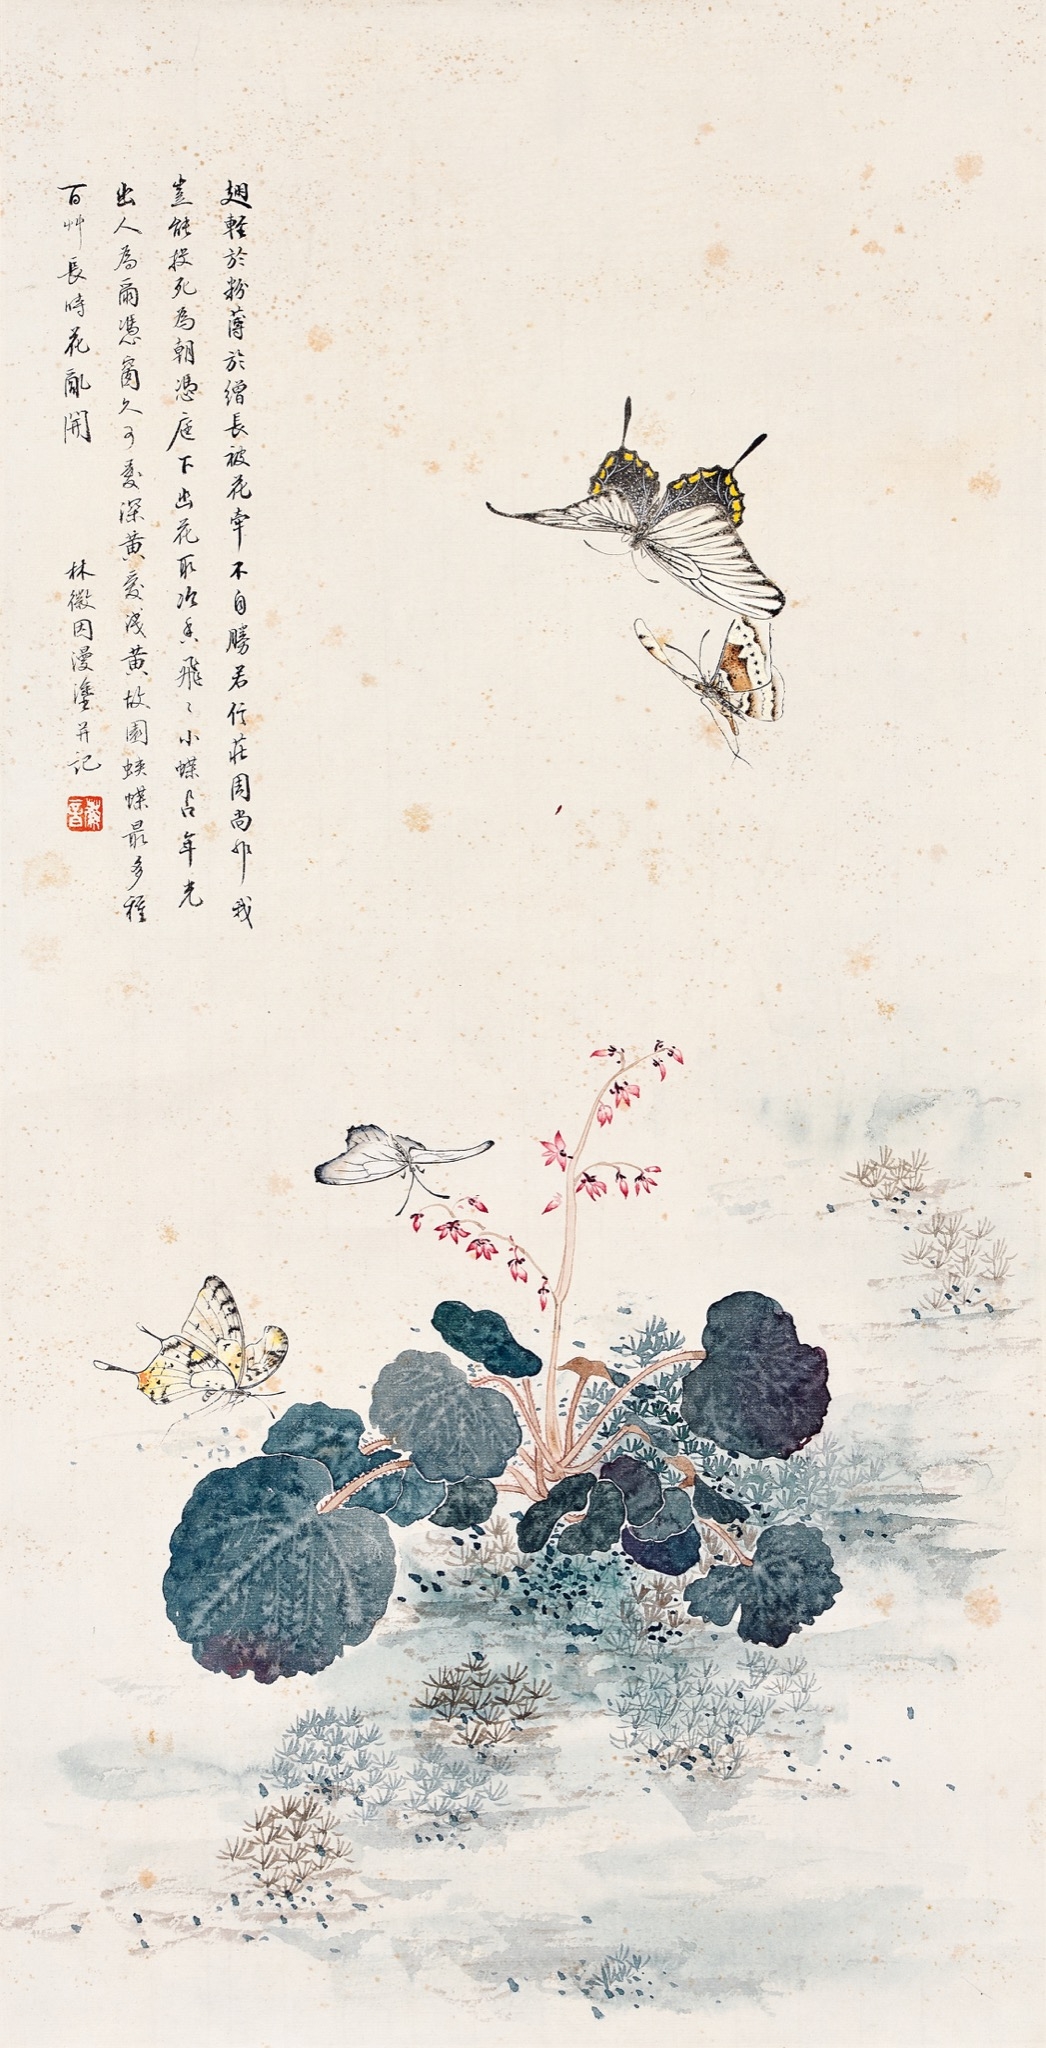 翅輕於粉薄於繒長被花牽不自勝若信莊周尚非我
豈能投死為韓憑庭下幽花取次香飛〻小蝶占年光
幽人為爾憑窗久可愛深黃愛淺黃故園蛺蝶最多種
百艸長時花亂開
林徽因漫塗并記
徽音